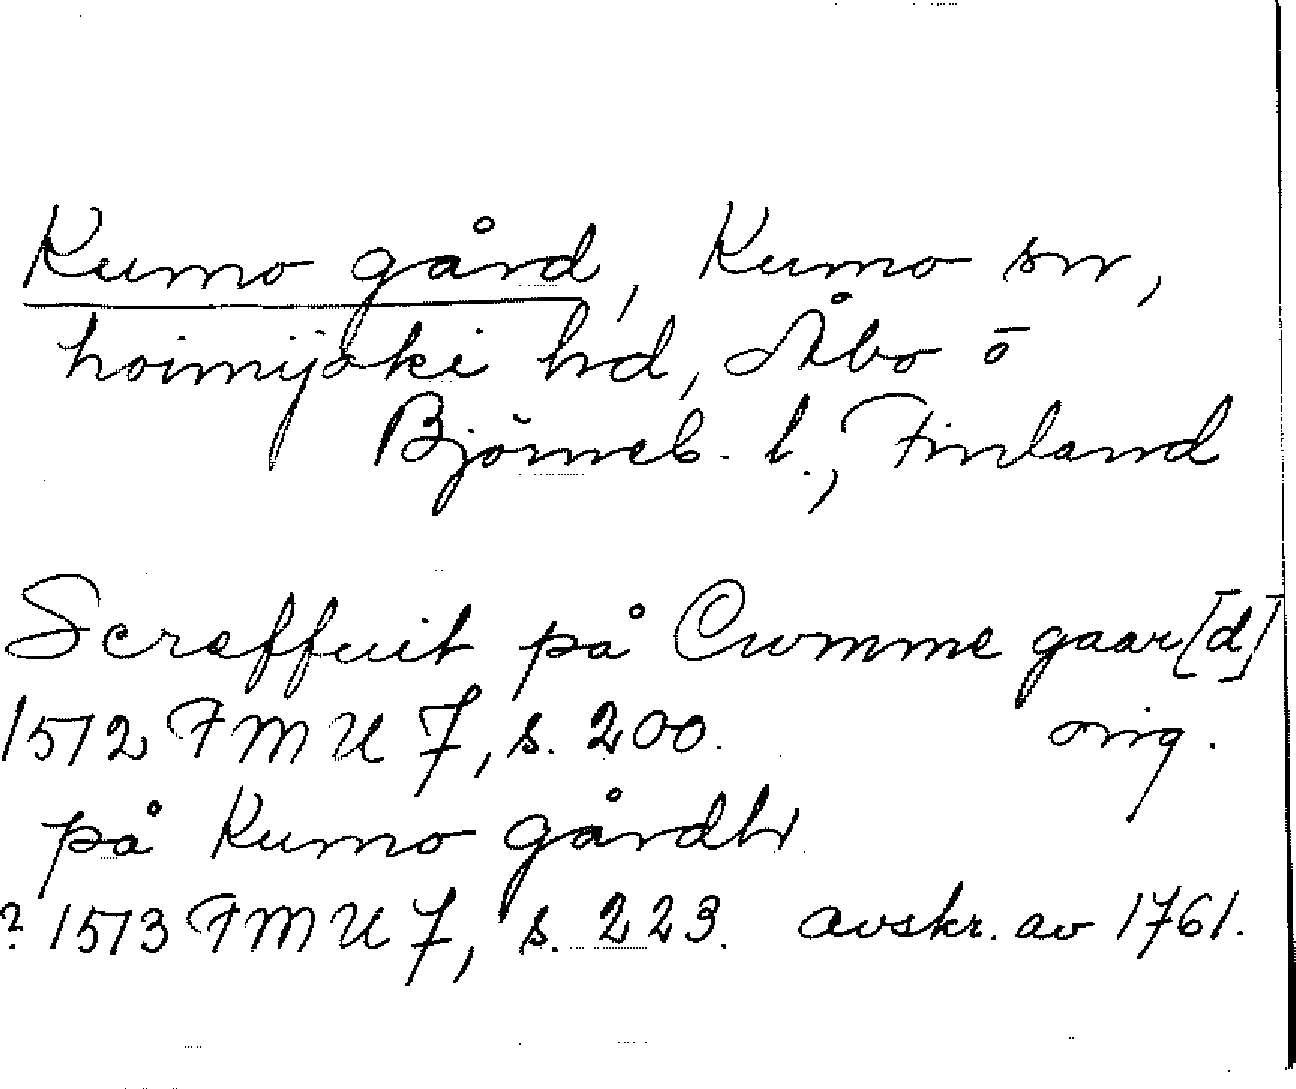 Kumo gård, Kumo sn,
Loimijoki hd, Åbo o
Björneb. l., Finland
Screffuit på Cwmme gaar[d]
1512 FMU 7, s. 200. orig.
på Kumo gårdh
? 1513 FMU 7, s. 223. avskr. av 1761.